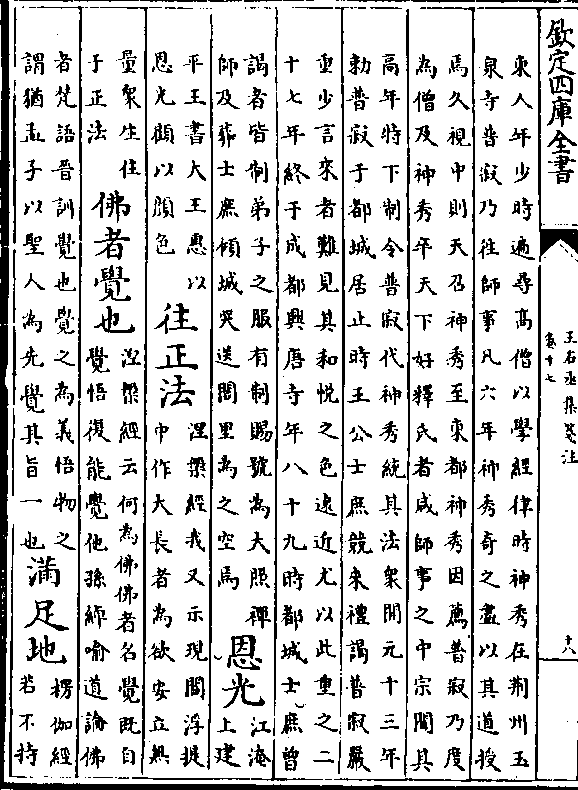 欽定四庫全書
王右丞集箋注
卷十七
十八
東人年少時遍尋高僧以學經律時神秀在荆州玉
泉寺普寂乃往師事凡六年神秀奇之盡以其道授
焉久視中則天召神秀至東都神秀因薦普寂乃度
為僧及神秀卒天下好釋氏者咸師事之中宗聞其
高年特下制令普寂代神秀統其法衆開元十三年
勅普寂于都城居止時王公士庶競來禮謁普寂嚴
重少言來者難見其和悦之色逺近尤以此重之二
十七年終于成都興唐寺年八十九時都城士庶曾
謁者皆制弟子之服有制賜號為大照禪師及葬士庶傾城哭送閭里為之空焉恩光江淹上建
平王書大王惠以恩光顧以顔色往正法涅槃經我又示現閻浮提中作大長者為欲安立無
量衆生住于正法佛者覺也涅槃經云何為佛佛者名覺既自覺悟復能覺他孫綽喻道論佛
者梵語晉訓覺也覺之為義悟物之謂猶孟子以聖人為先覺其旨一也滿足地楞伽經若不持